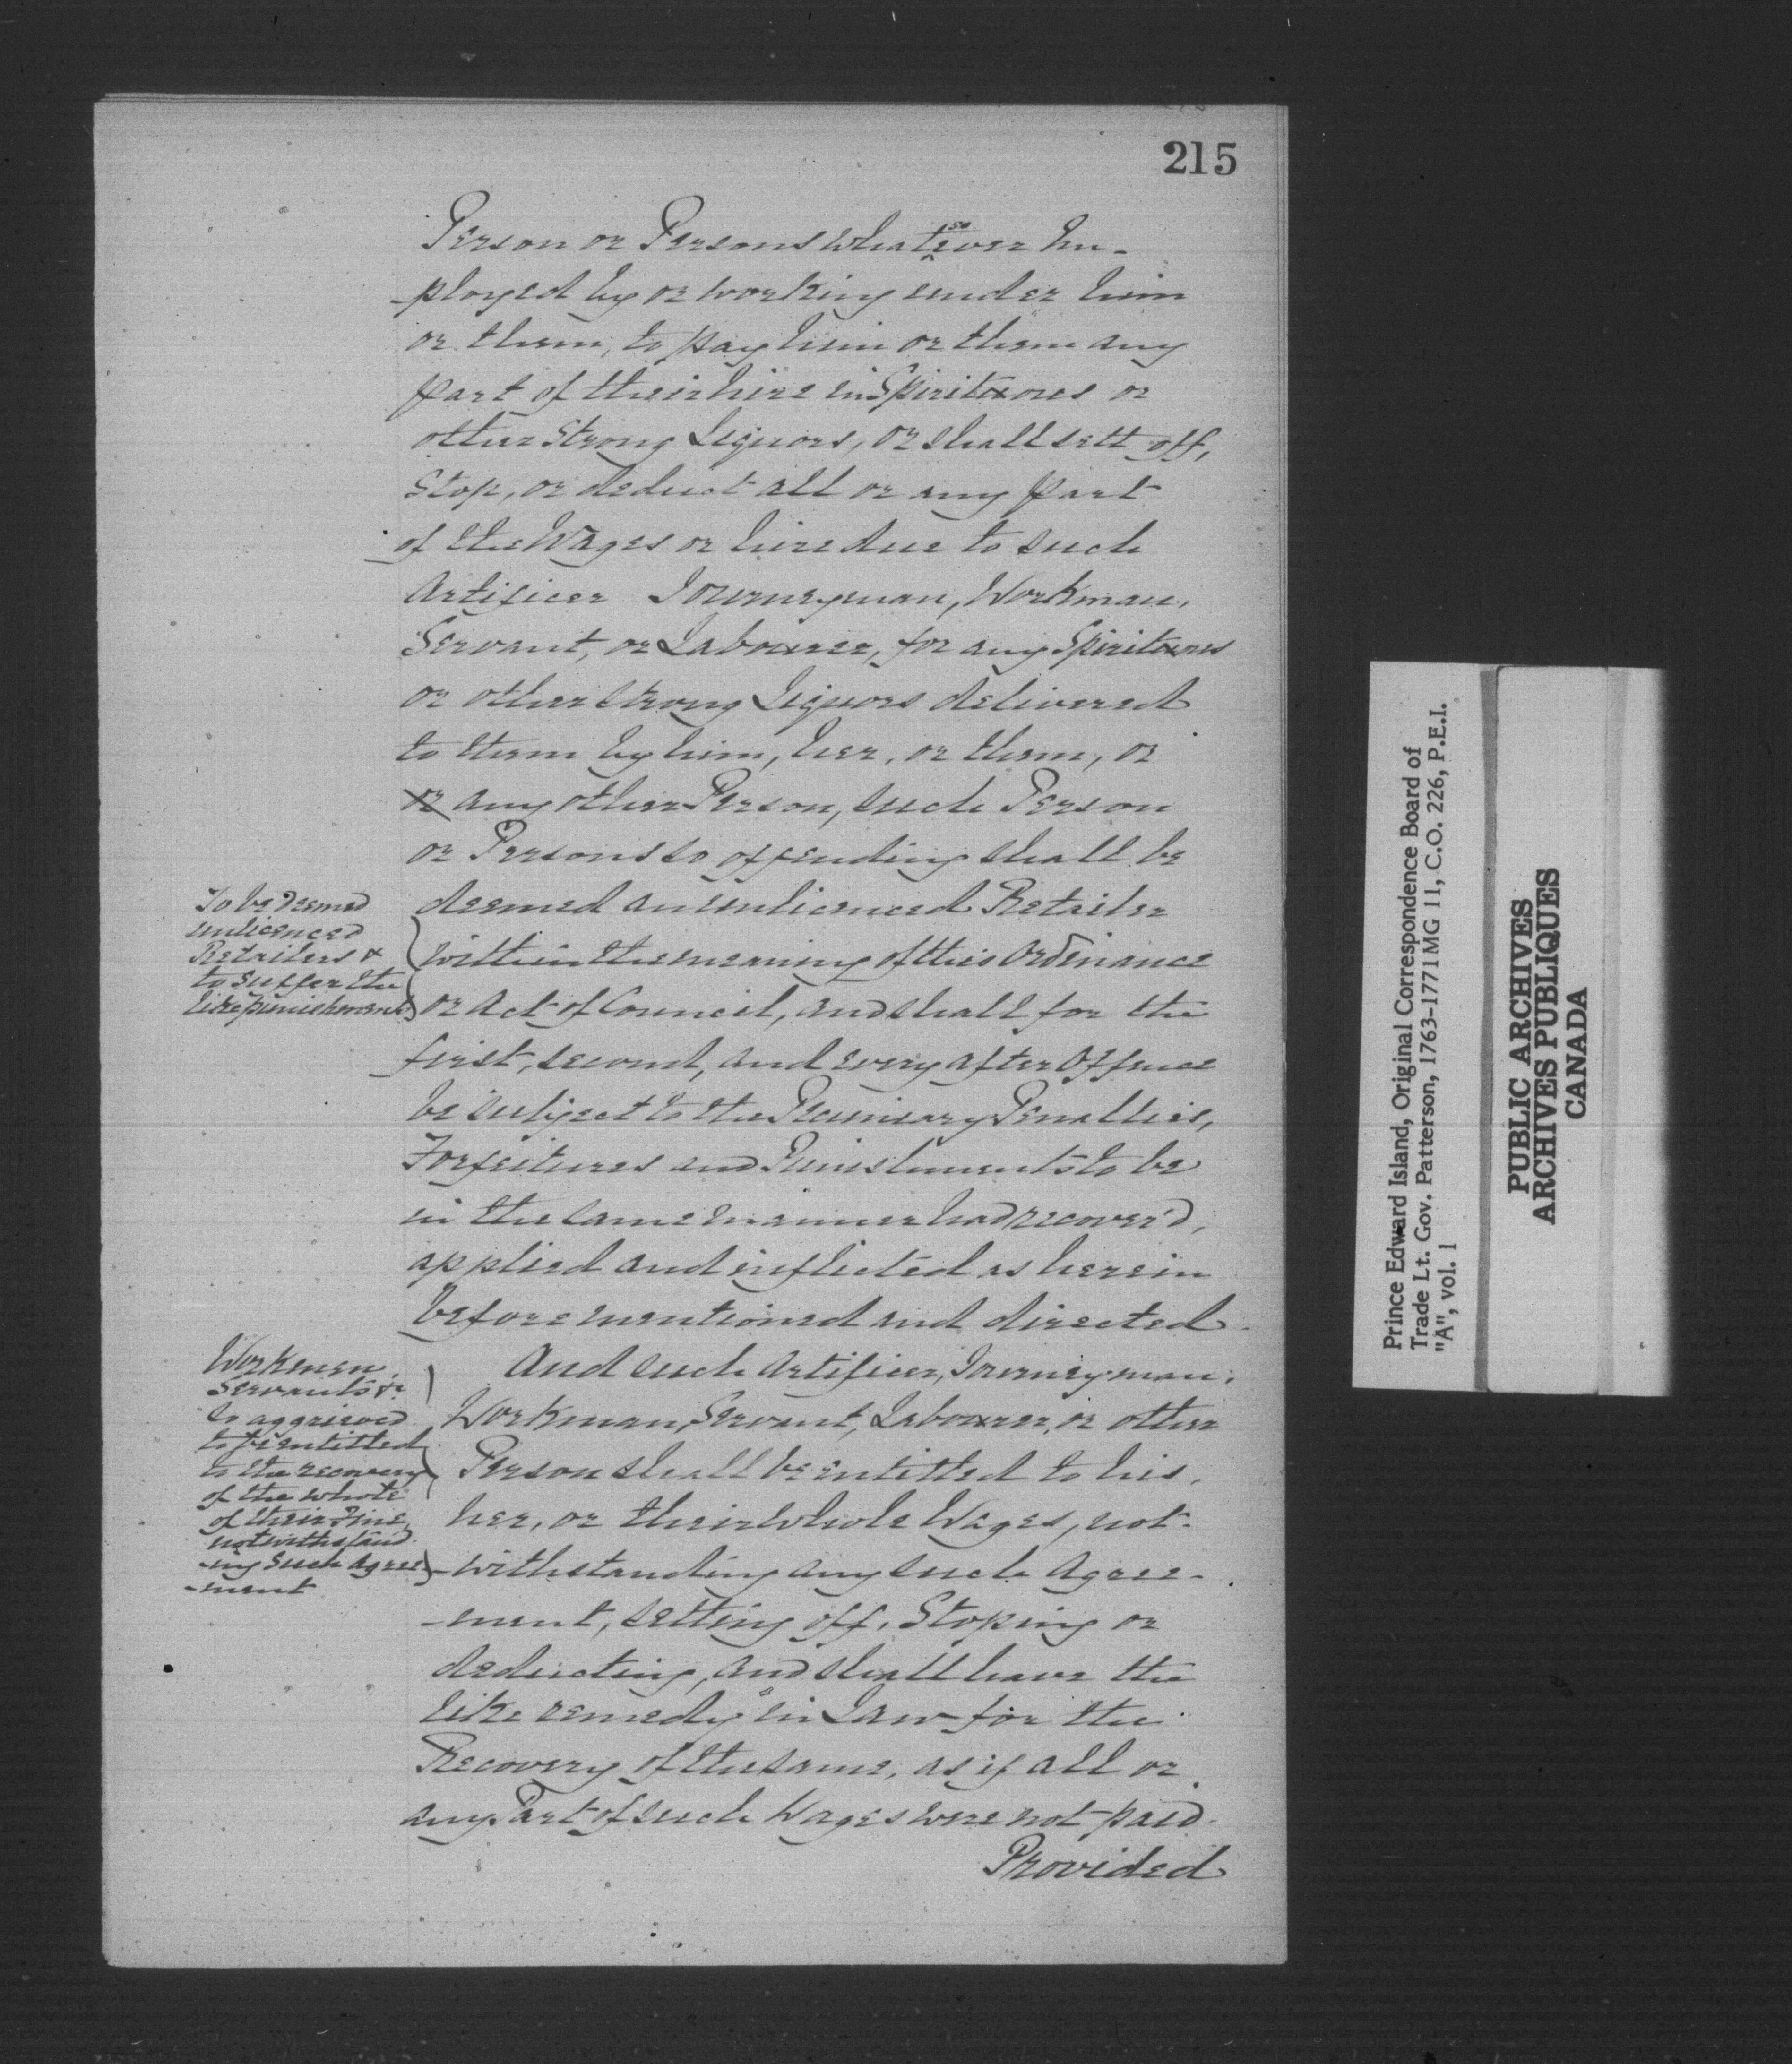 215
Person or Persons whatsoever Em-
-ployed by or working under him
or them, to pay him or them any
part of their hire in Spirituous or
other Strong Liquors, or shall sett off,
Stop, or deduct all or any part
of the Wages or hire due to such
Artificer Journeyman, Workman,
Servant, or Labourer, for any Spirituous
or other strong Liquors delivered
to them by him, her, or them, or
or any other Person, such Person
or Persons so offending shall be
To be Deemed
unlicenced
Retailers &
to suffer the
like punishment
deemed an unlicenced Retailer
within the meaning of this Ordinance
or Act of Council, and shall for the
first, second, and every after Offence
be subject to the Pecuniary Penalties,
Forfeitures and Punishments to be
in the same manner had recover'd,
applied and inflicted as herein
before mentioned and directed.
Workmen,
Servants &c
so aggrieved
to be entitled
to the recovery
of the whole
of their Time,
notwithstand
-ing such agree
-ment
And such Artificer, Journeyman,
Workman, Servant, Labourer, or other
Person shall be entitled to his,
her, or their whole Wages, not-
-withstanding any such Agree-
-ment, setting off, Stoping or
deducting, and shall have the
like remedy in Law for the
Recovery of the same, as if all or
any Part of such Wages were not paid.
Provided
Prince Edward Island, Original Correspondence Board of
Trade Lt. Gov. Patterson, 1763-1771 MG 11, C.O. 226, P.E.I.
"A", vol. 1
PUBLIC ARCHIVES
ARCHIVES PUBLIQUES
CANADA